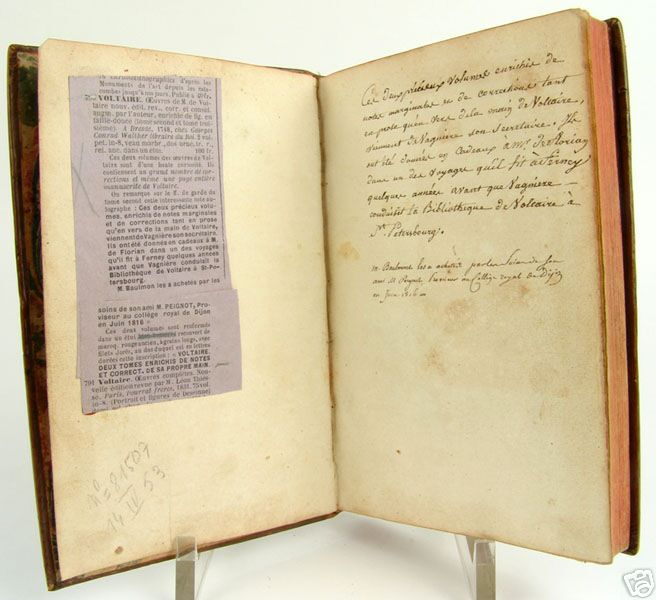 de l'art depuis les cata-
combes jusqu'à nos jours. Publié à
VOLTAIRE. Œuvres de M. de Vol-
taire nouv. édit. rev., corr. et consid.
augm. par l'auteur, enrichie de fig. en
taille-douce (tome second et tome troi-
sième). A Dresde, 1748, chez Georges
Conrad Walther libraire du Roi. 2 vol.
pet. in-8, veau marbr., dos orné, tr. r.,
rel. anc. dans un étui. 100 fr.
Ces deux volumes des œuvres de Vol-
taire sont d'une haute curiosité. Ils
contiennent un grand nombre de cor-
rections et même une page entière
manuscrite de Voltaire.
On remarque sur le f. de garde du
tome second cette intéressante note au-
tographe : Ces deux précieux volu-
mes, enrichis de notes marginales
et de corrections tant en prose
qu'en vers de la main de Voltaire,
viennent de Vagnière son secrétaire.
ils ont été donnés en cadeaux à M.
de Florian dans un des voyages
qu'il fit à Ferney quelques années
avant que Vagnière conduisit la
Bibliothèque de Voltaire à St-Pe-
tersbourg.
M. Baulmon les a achetés par les
soins de son ami M. PEIGNOT, Pro-
viseur au collége royal de Dijon
en Juin 1816 »
Ces deux volumes sont renfermés
dans un étui recouvert de
maroq. rouge ancien, à grains longs, avec
filets dorés, au dos duquel est en lettres
dorées cette inscription : « VOLTAIRE.
DEUX TOMES ENRICHIS DE NOTES
ET CORRECT. DE SA PROPRE MAIN.
794 Voltaire. Œuvres complètes. Nou-
velle édition revue par M. Léon Thies-
sé. Paris, Pourrat frères, 1831. 75 vol.
in-8. (Portrait et figures de Desenne)
N° = 81507
14 IV 53
Ces deux précieux volumes enrichis de
notes marginales et de corrections tant
en prose qu'en vers de la main de Voltaire,
viennent de Vagnière son Secretaire. Ils
ont été donnés en Cadeaux a Mr. de Florian
dans un des Voyages qu'il fit a Ferney
quelque année avant que Vagniere
conduisit la Bibliotheque de Voltaire à
St. Petersbourg.
M. Baulmont les a achetés par les Soins de Son
ami M. Peignot Proviseur au Collège royal de Dijon
en Juin 1816 —